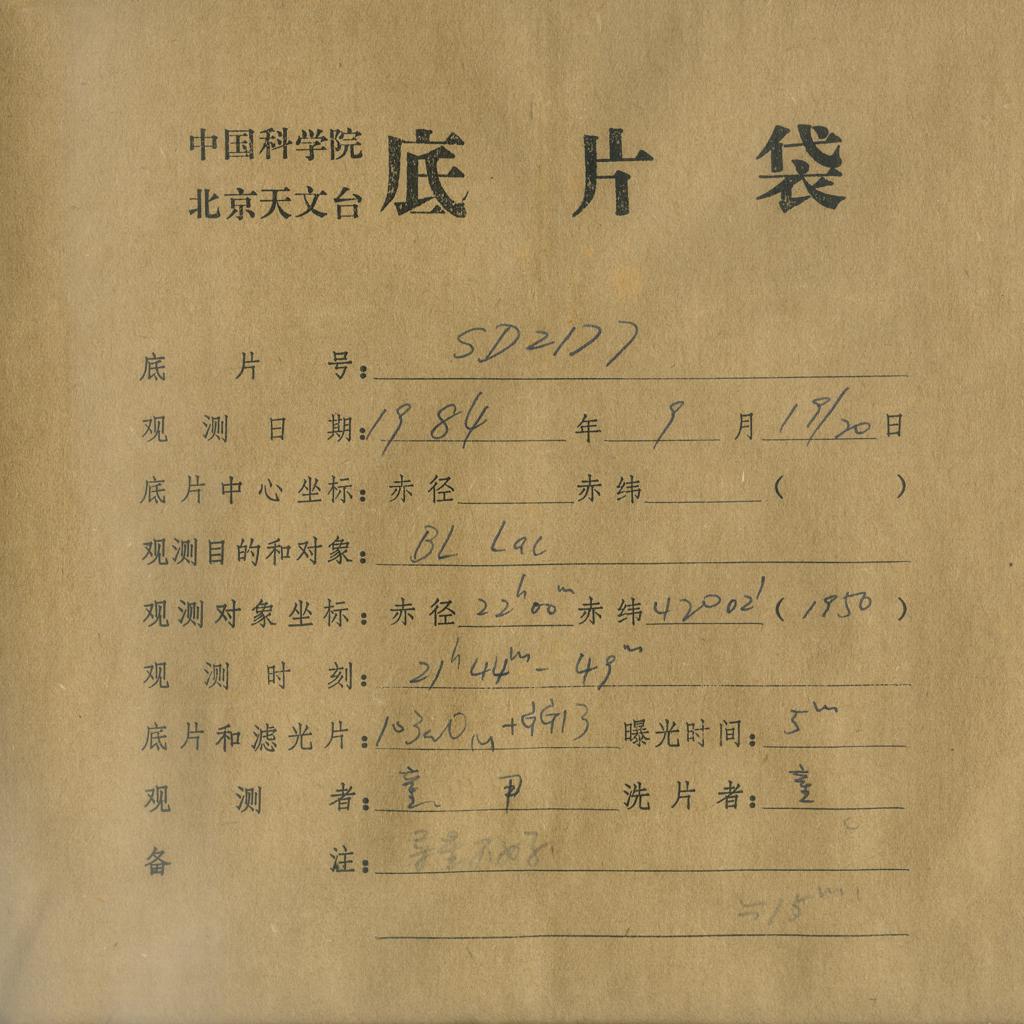 中国科学院
北京天文台 底片袋
底片号: SD2177
观测日期: 1984年 9月 19/20日
底片中心坐标: 赤径 赤纬 ( )
观测目的和对象: BL Lac
观测对象坐标: 赤径 22h00m 赤纬 42°02' (1950)
观测时刻: 21h44m - 49m
底片和滤光片: 103aO +GG13 曝光时间: 5m
观测者: 童 甲 洗片者: 童
备注:
≈15m